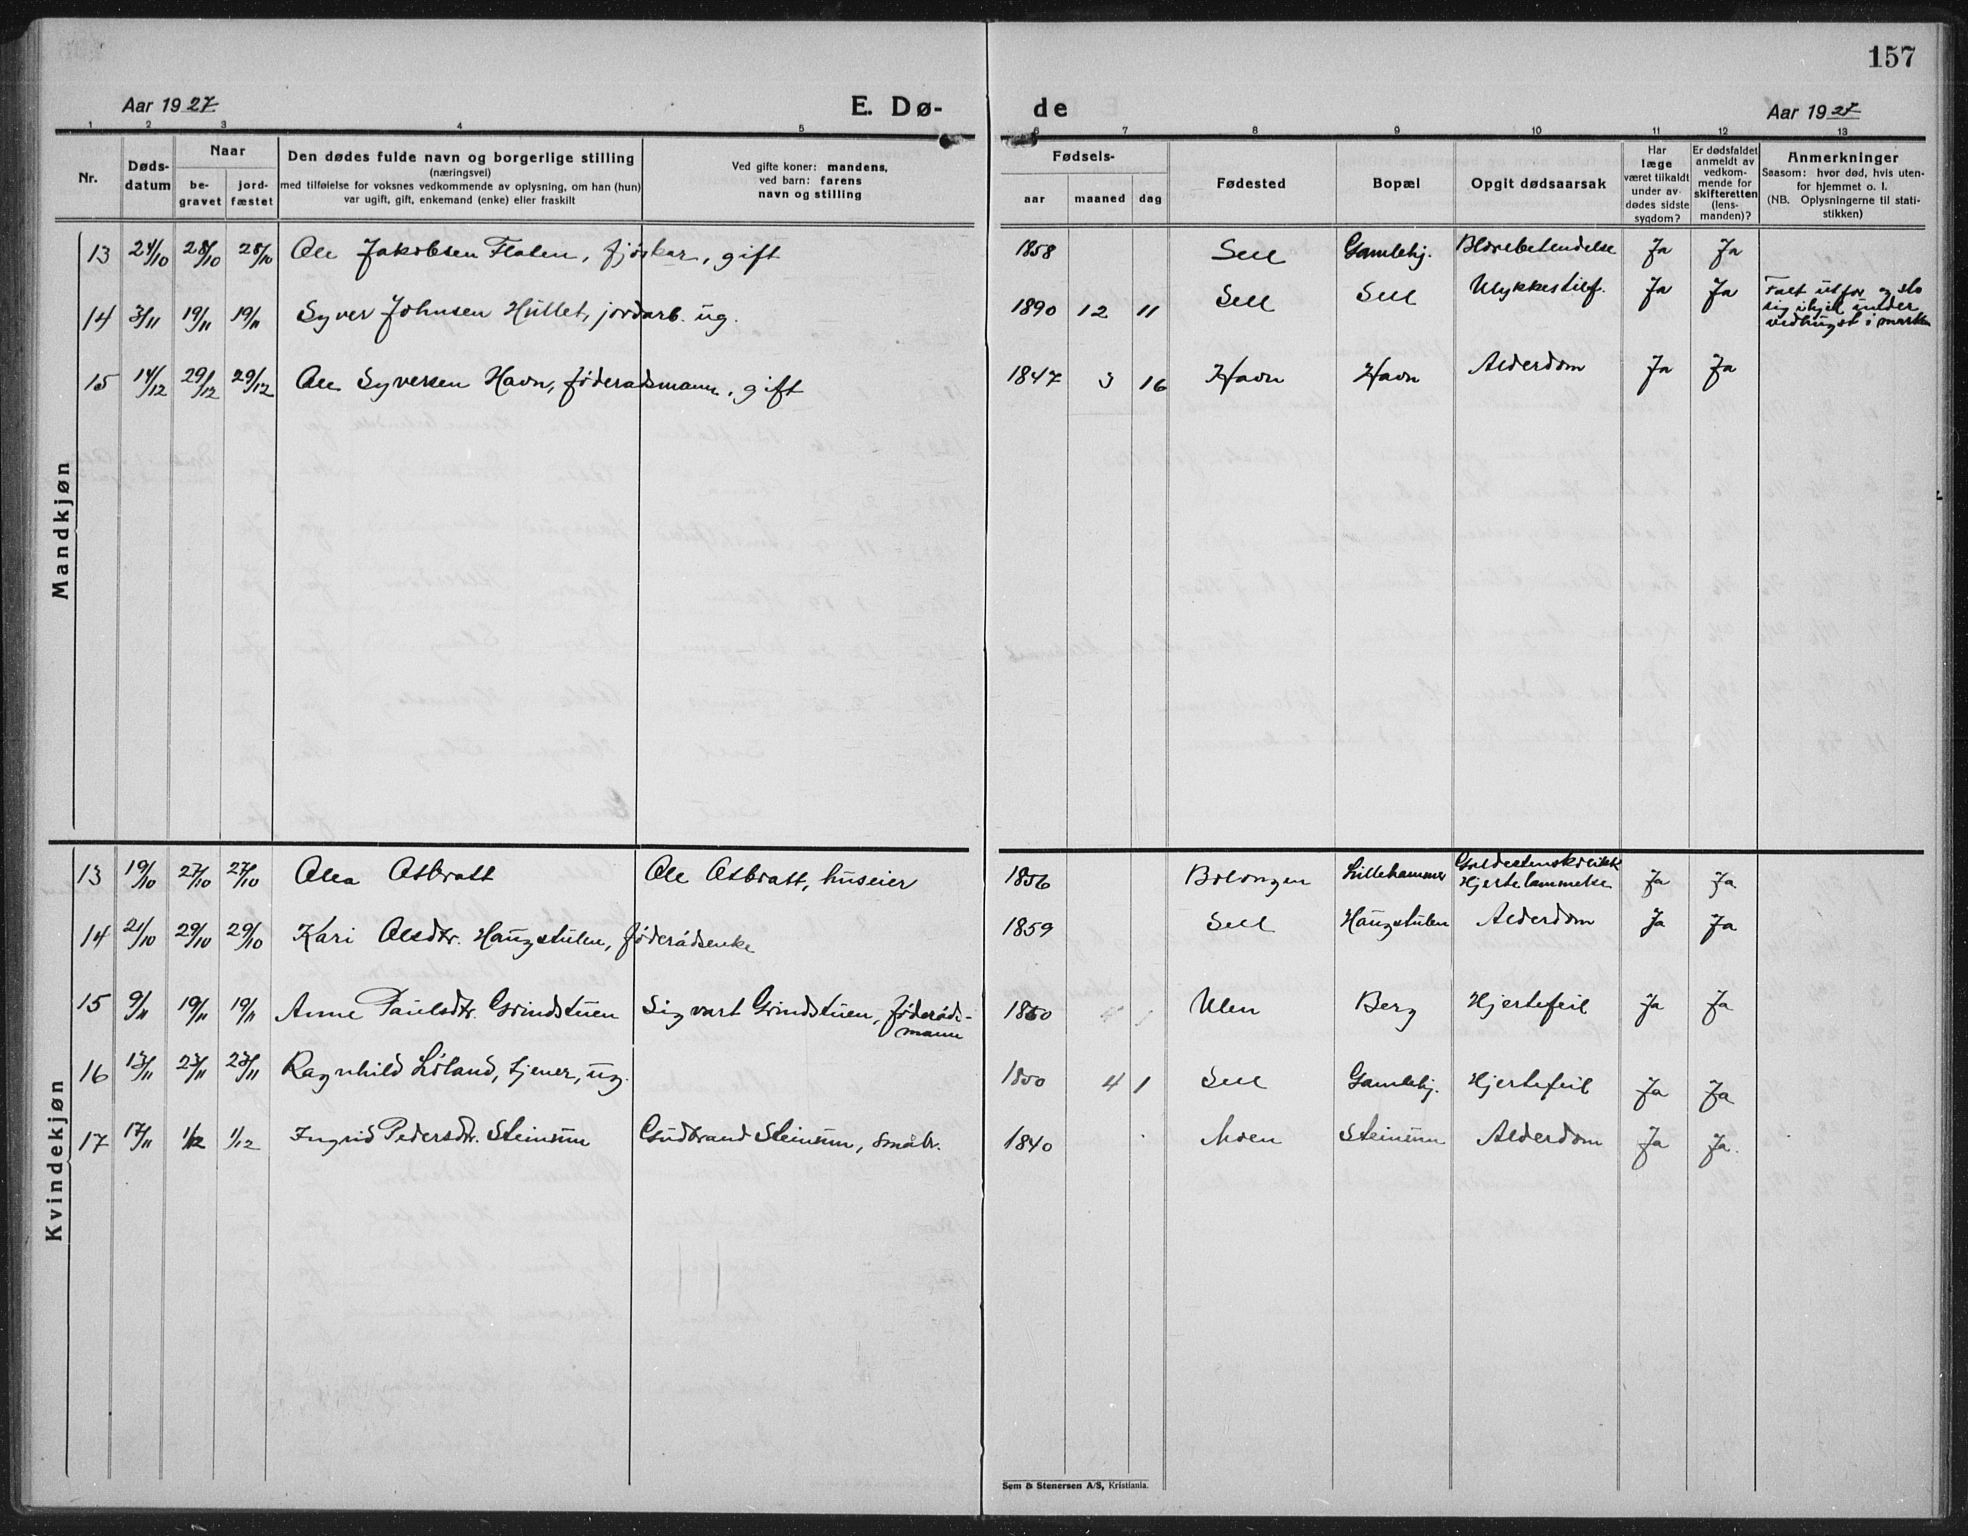 157
Aar 1927 E. Dø- de Aar 1927
1 2 3 4 5 6 7 8 9 10 11 12 13
Nr.
Døds-
datum
Naar
be-
gravet
jord-
fæstet
Den dødes fulde navn og borgerlige stilling
(næringsvei)
med tilføielse for voksnes vedkommende av oplysning, om han (hun)
var ugift, gift, enkemand (enke) eller fraskilt
Ved gifte koner: mandens,
ved barn: farens
navn og stilling
Fødsels-
aar maaned dag
Fødested
Bopæl
Opgit dødsaarsak
Har
læge
været tilkaldt
under av-
dødes sidste
sygdom?
Er dødsfaldet
anmeldt av
vedkom-
mende for
skifteretten
(lens-
manden)?
Anmerkninger
Saasom: hvor død, hvis uten-
for hjemmet o. l.
(NB. Oplysningerne til stati-
stikken)
Mandkjøn
13 24/10 28/10 28/10 Ole Jakobsen Flaten, fjøskar, gift 1858 Sell Gamlehj. Blærebetendelse Ja Ja
14 3/11 19/11 19/11 Syver Johnsen Hullet, jordarb. ug. 1890 12 11 Sell Sell Ulykkestilf. Ja Ja Falt utfor og slo
sig ihjel under
vedhugst i marken
15 14/12 29/12 29/12 Ole Syversen Havn, føderadsmann, gift 1847 3 16 Havn Havn Alderdom Ja Ja
Kvindekjøn
13 19/10 27/10 27/10 Olea Åsbratt Ole Åsbratt, huseier 1856 Lillehammer
Hjertelammelse Ja Ja
14 21/10 29/10 29/10 Kari Olsdtr. Haugstulen, føderådsenke 1859 Sell Haugstulen Alderdom Ja Ja
15 9/11 19/11 19/11 Anne Paulsdtr. Grindstuen Sigvart Grindstuen, føderåds-
mann 1860 Ulen Berg Hjertefeil Ja Ja
16 13/11 23/11 23/11 Ragnhild Liland, tjener, ug. 1850 4 1 Sell Gamlehj. Hjertefeil Ja Ja
17 17/11 1/12 1/12 Ingrid Pedersdtr. Steinum Gudbrand Steinum, småbr. 1840 Moen Steinum Alderdom Ja Ja.
Sem & Stenersen A/S, Kristiania.